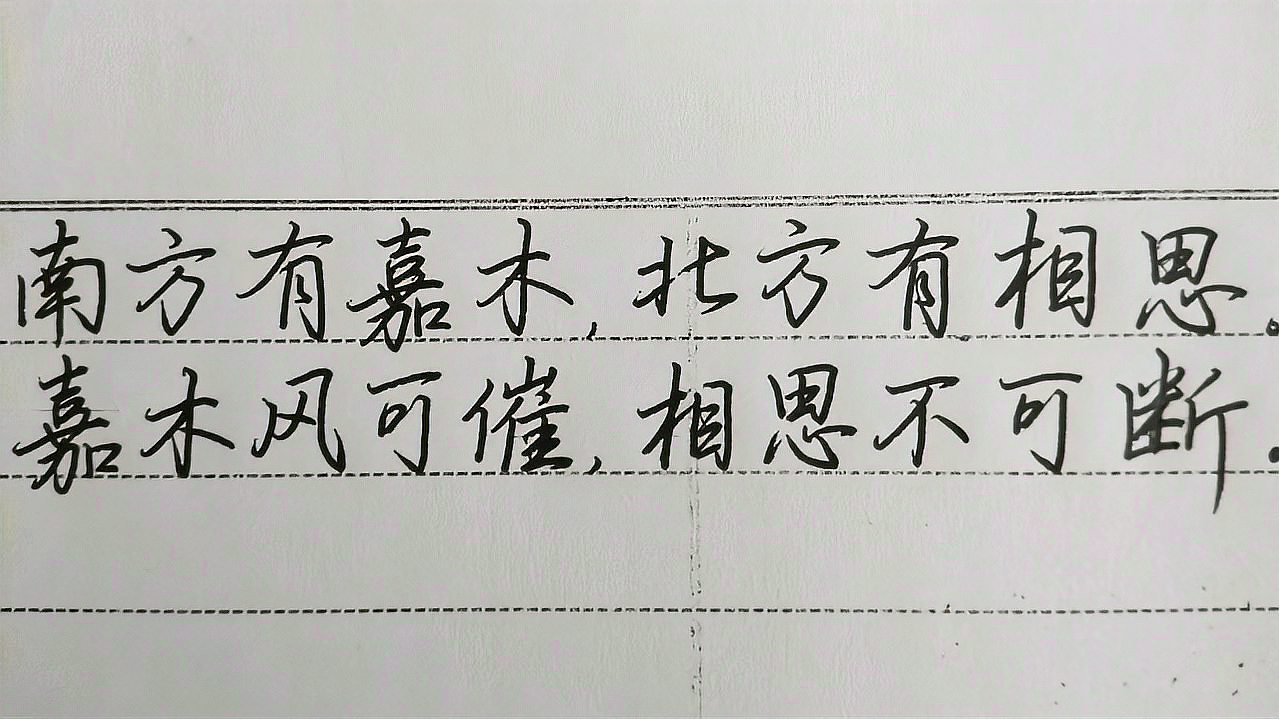 南方有嘉木,北方有相思。
嘉木风可催,相思不可断.